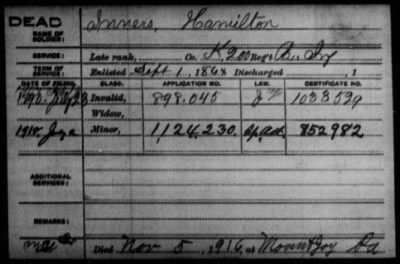 DEAD
NAME OF SOLDIER: Inners, Hamilton
SERVICE: Late rank, Co. K, 200 Reg't Pa. Inf
TERM OF SERVICE: Enlisted Sept 1, 1864 Discharged , 1
DATE OF FILING. CLASS. APPLICATION NO. LAW. CERTIFICATE NO.
1890 July 23 Invalid, 898.045 1033529
Widow,
Minor, 1,124,230 852982
ADDITIONAL SERVICES:
REMARKS:
Died Nov 5, 1916, at Mount Joy Pa